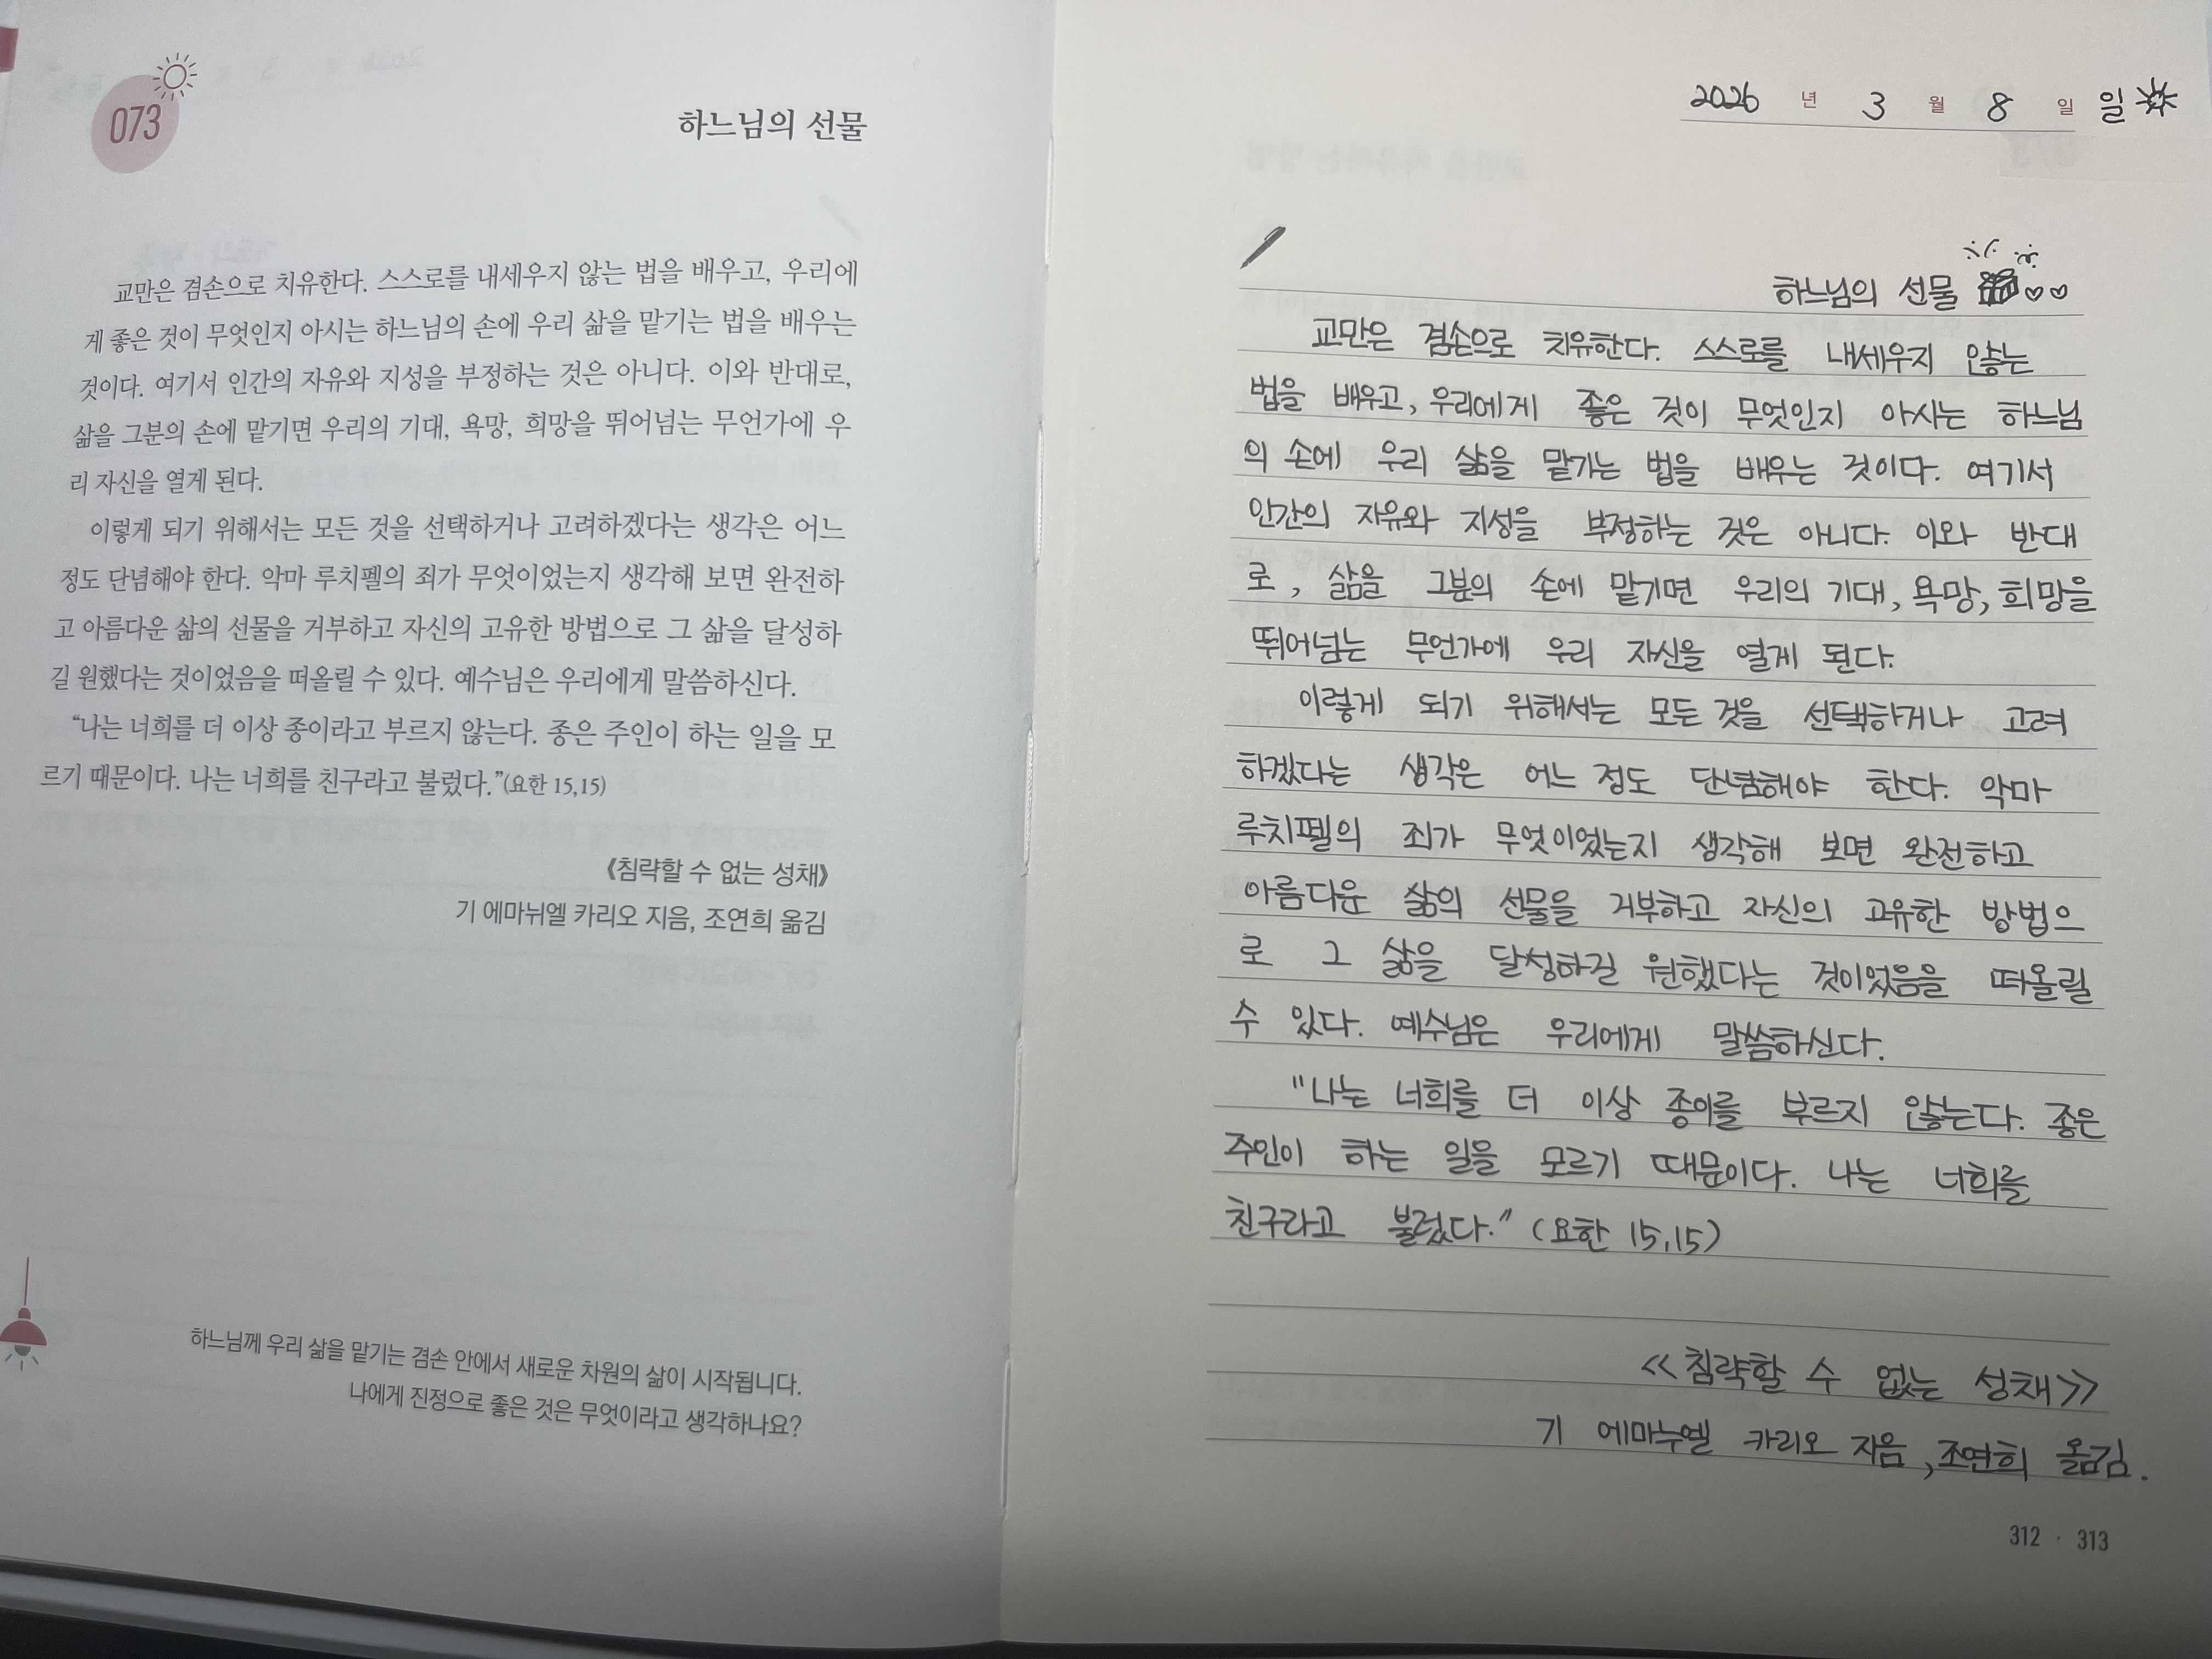 073
하느님의 선물
교만은 겸손으로 치유한다. 스스로를 내세우지 않는 법을 배우고, 우리에
게 좋은 것이 무엇인지 아시는 하느님의 손에 우리 삶을 맡기는 법을 배우는
것이다. 여기서 인간의 자유와 지성을 부정하는 것은 아니다. 이와 반대로,
삶을 그분의 손에 맡기면 우리의 기대, 욕망, 희망을 뛰어넘는 무언가에 우
리 자신을 열게 된다.
이렇게 되기 위해서는 모든 것을 선택하거나 고려하겠다는 생각은 어느
정도 단념해야 한다. 악마 루치펠의 죄가 무엇이었는지 생각해 보면 완전하
고 아름다운 삶의 선물을 거부하고 자신의 고유한 방법으로 그 삶을 달성하
길 원했다는 것이었음을 떠올릴 수 있다. 예수님은 우리에게 말씀하신다.
“나는 너희를 더 이상 종이라고 부르지 않는다. 좋은 주인이 하는 일을 모
르기 때문이다. 나는 너희를 친구라고 불렀다.”(요한 15,15)
《침략할 수 없는 성채》
기 에마뉘엘 카리오 지음, 조연희 옮김
하느님께 우리 삶을 맡기는 겸손 안에서 새로운 차원의 삶이 시작됩니다.
나에게 진정으로 좋은 것은 무엇이라고 생각하나요?
2026 년 3 월 8 일 일
하느님의 선물
교만은 겸손으로 치유한다. 스스로를 내세우지 않는
법을 배우고, 우리에게 좋은 것이 무엇인지 아시는 하느님
의 손에 우리 삶을 맡기는 법을 배우는 것이다. 여기서
인간의 자유와 지성을 부정하는 것은 아니다. 이와 반대
로, 삶을 그분의 손에 맡기면 우리의 기대, 욕망, 희망을
뛰어넘는 무언가에 우리 자신을 열게 된다.
이렇게 되기 위해서는 모든 것을 선택하거나 고려
하겠다는 생각은 어느 정도 단념해야 한다. 악마
루치펠의 죄가 무엇이었는지 생각해 보면 완전하고
아름다운 삶의 선물을 거부하고 자신의 고유한 방법으
로 그 삶을 달성하길 원했다는 것이었음을 떠올릴
수 있다. 예수님은 우리에게 말씀하신다.
"나는 너희를 더 이상 종이를 부르지 않는다. 좋은
주인이 하는 일을 모르기 때문이다. 나는 너희를
친구라고 불렀다." (요한 15,15)
<<침략할 수 없는 성채>>
기 에마누엘 카리오 지음, 조연희 옮김.
312 · 313